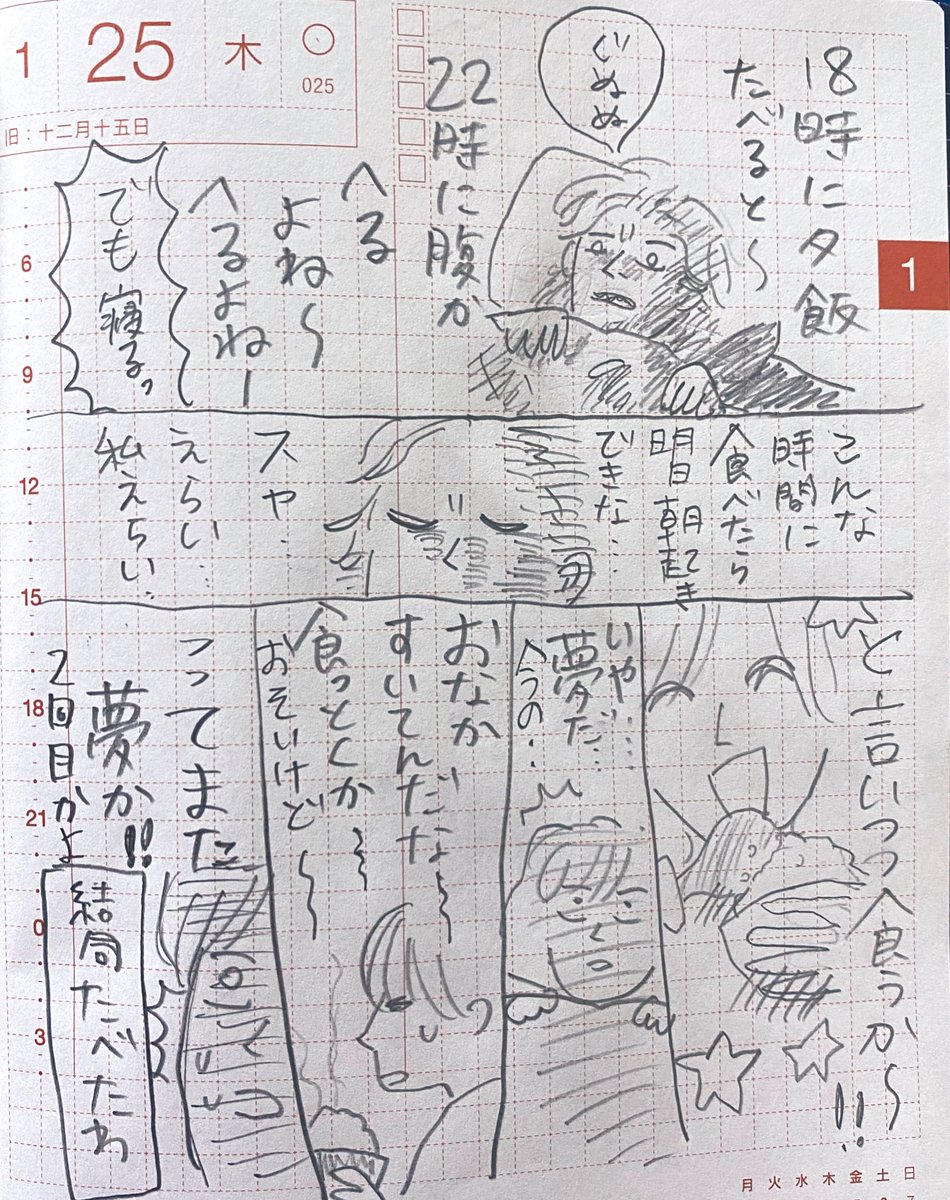 1 25 木
025
旧：十二月十五日
1
18時に夕飯
たべると〜
ぐぬぬ
22時に腹が
へる
よね〜
へるよねー
でも寝るっ
こんな
時間に
食べたら
明日朝起き
できな…
スヤ…
えらい…
私えらい…
と言いつつ食うか〜!!
いや…
夢だ…
今の…
おなか
すいてんだな〜
食っとくか〜
おそいけど〜
ってまた
夢か!!
2回目かよ
結局たべたわ
6
9
12
15
18
21
0
3
月火水木金土日